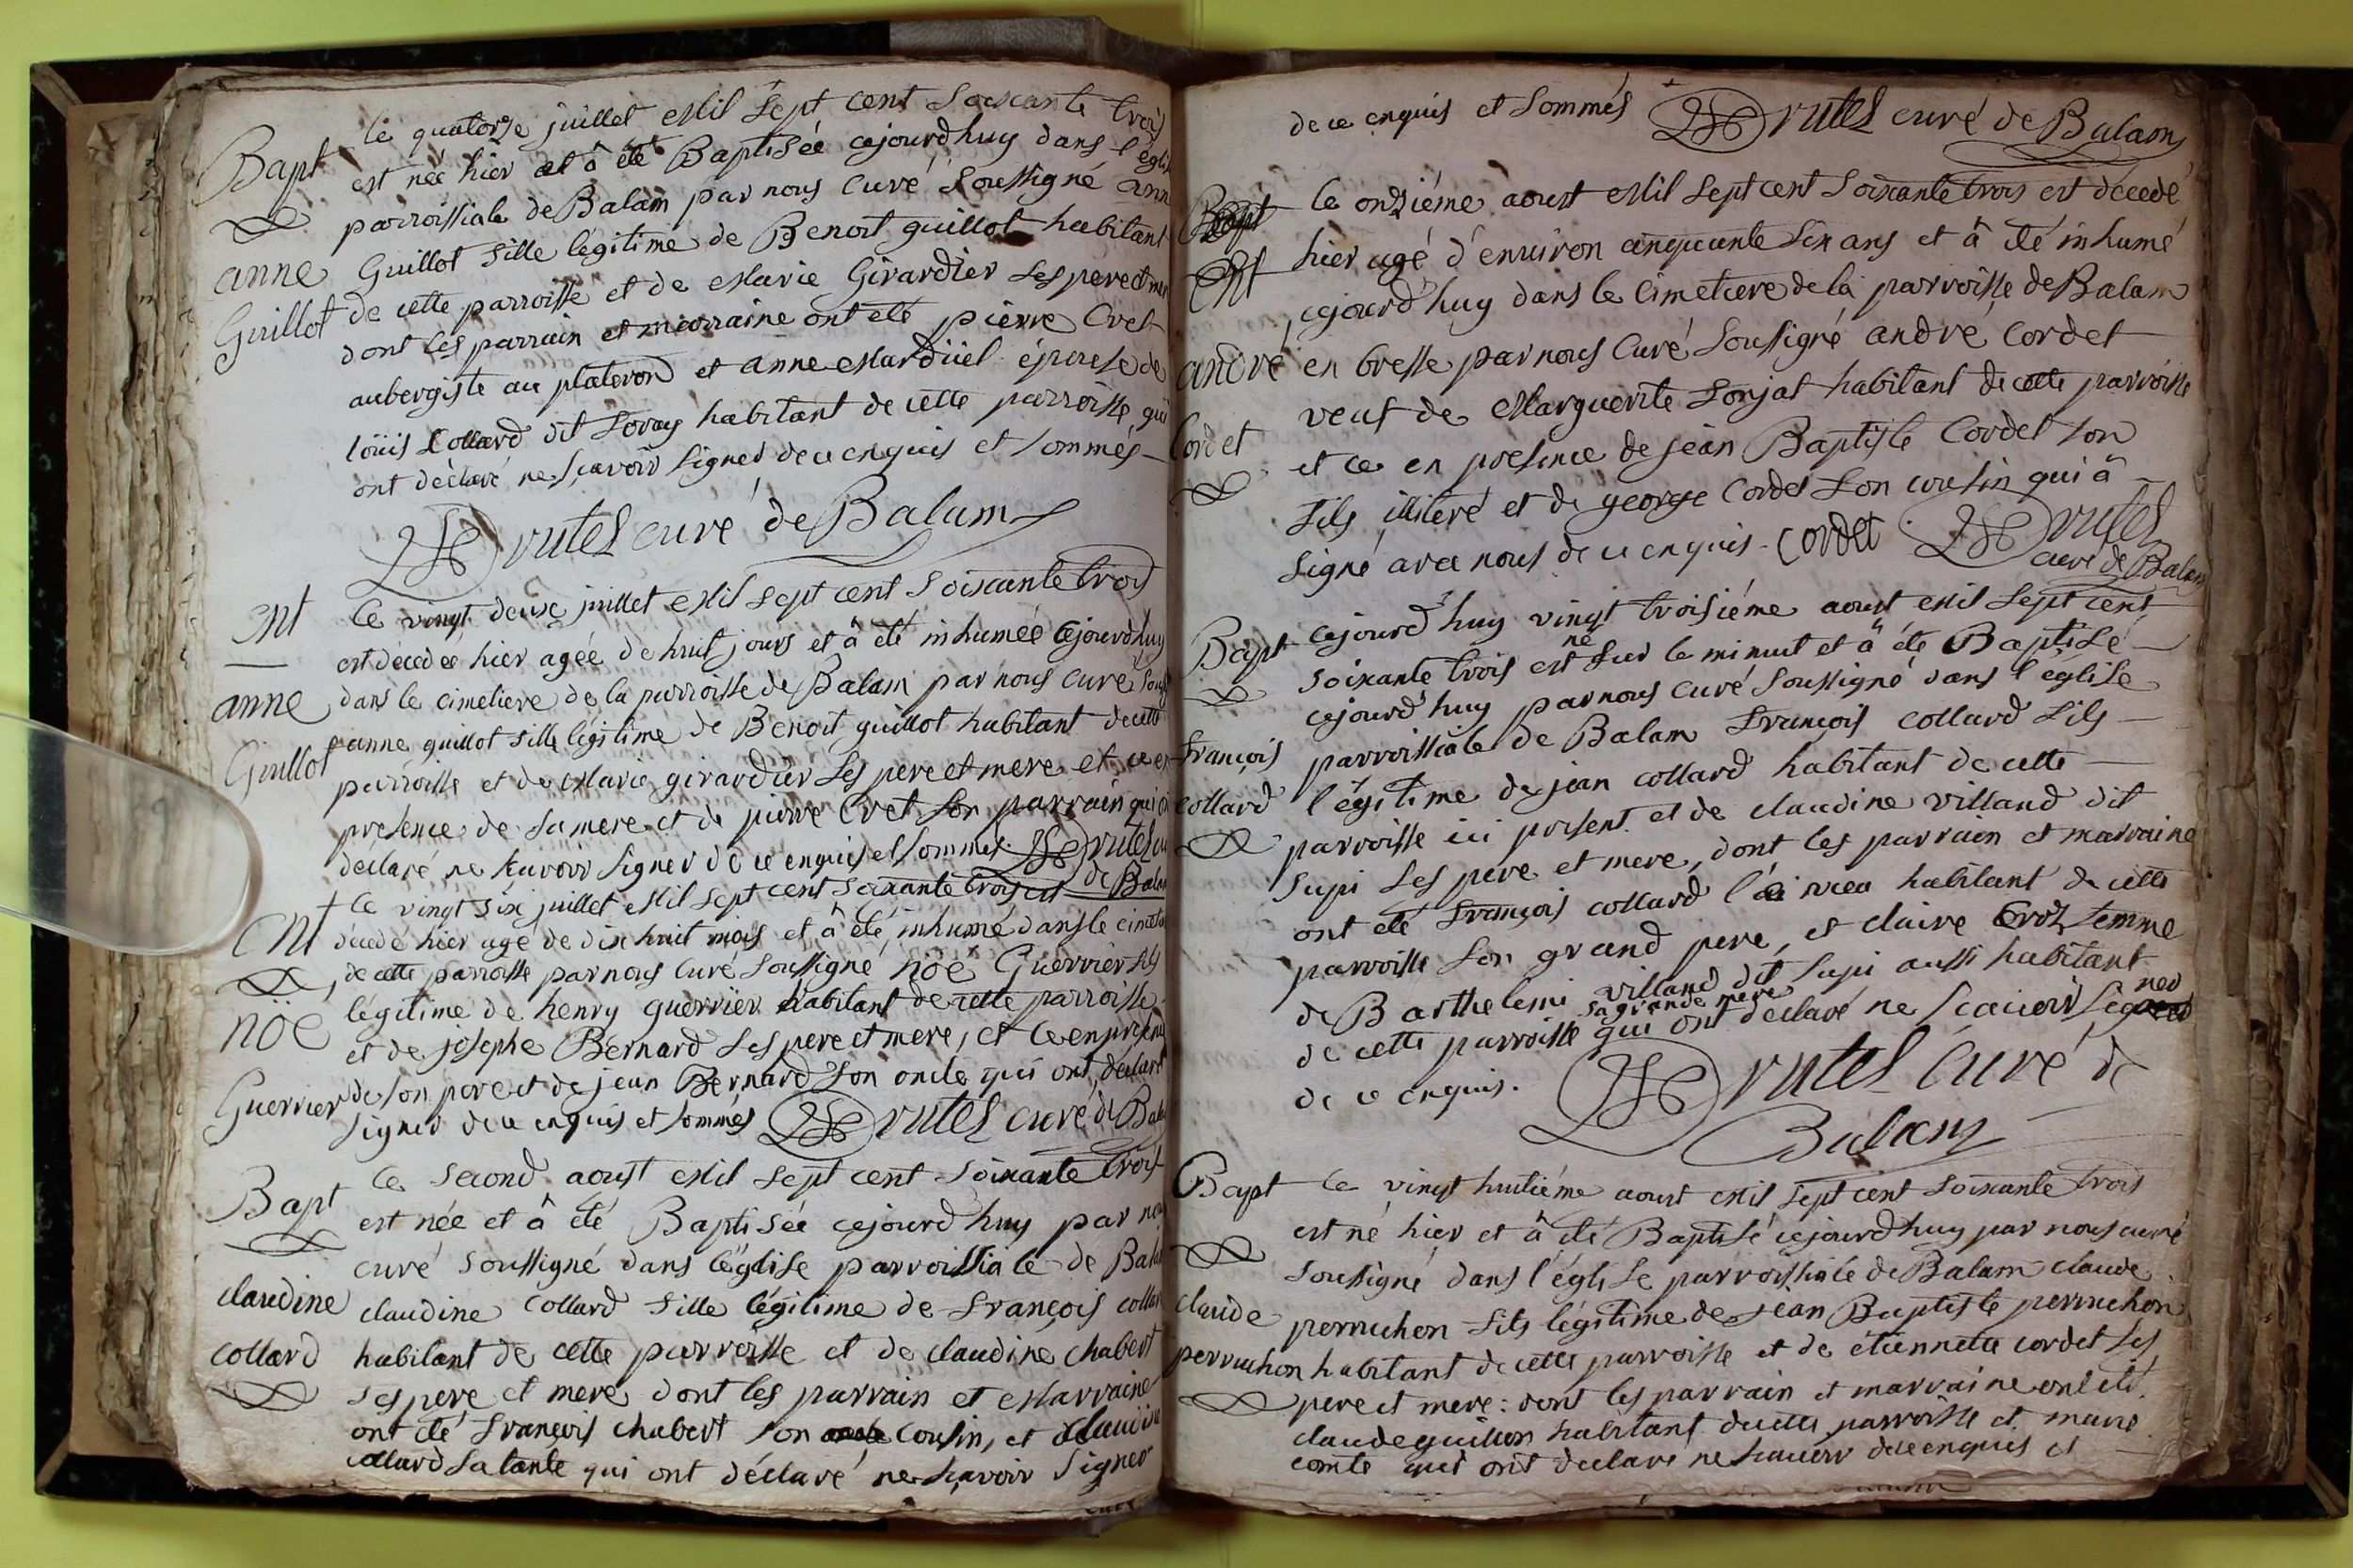 Le quatorze juillet Mil Sept cent Soixante trois
Bapt est née hier et à été Baptisée cejourd'huy dans l'eglise
parroissiale de Balam par nous Curé Soussigné ann
anne Guillot fille légitime de Benoit guillot habitant
Guillot de cette parroisse et de Marie Girardier Ses pere et mer
dont les parrain et marraine ont eté pierre Cret
aubergiste au plateron et anne Mardüel épouse de
loüis Collard dit Loray habitant de cette parroisse qui
ont déclaré ne Scavoir Signer de ce enquis et Sommés
rutel curé de Balam
Ent Le vingt deux juillet Mil Sept cent Soixante trois
est décedée hier agée de huit jours et à été inhumée cejourdhuy
anne dans le cimetiere de la parroisse de Balam par nous curé Sous
Guillot anne guillot fille légitime de Benoit guillot habitant de cette
parroisse et de Marie girardier Ses pere et mere et ce en
présence de Sa mere et de pierre Cret Son parrain qui
declaré ne Scavoir Signer de ce enquis et Sommés. rutel cu
de Balam
Le vingt Six juillet Mil Sept cent Soixante trois est
Ent décedé hier agé de dix huit mois et à été inhumé dans le cimetie
de cette parroisse par nous Curé Soussigné noë Guerrier fils
légitime de henry guerrier habitant de cette parroisse
noë et de josephe Bernard Ses pere et mere, et ce en présence
Guerrier de Son pere et de jean Bernard Son oncle qui ont declaré
Signer de ce enquis et Sommés rutel curé de Bala
Le Second aoust Mil Sept cent Soixante trois
Bapt est née et à été Baptisée cejourd'huy par nou
curé Soussigné dans l'église parroissiale de Balam
claudine claudine Collard fille légitime de françois collar
collard habitant de cette parroisse et de claudine chabert
Ses pere et mere dont les parrain et Marraine
ont été françois chabert Son cousin, et claudine
collard Sa tante qui ont déclaré ne Scavoir Signer
de ce enquis et Sommés rutel curé de Balam
Le onziéme aoust Mil Sept cent Soixante trois est décedé
Ent hier agé d'environ cinquante Six ans et à été inhumé
cejourd'huy dans le Cimetiere de la parroisse de Balam
andré en bresse par nous Curé Soussigné andré Cordet
veuf de Marguerite Sonjat habitant de cette parroisse
Cordet et ce en presence de jean Baptiste Cordet Son
fils illiteré et de george Cordet Son cousin qui à
Signé avec nous de ce enquis. Cordet rutel
curé de Balam
Bapt Cejourd'huy vingt troisiéme aoust Mil Sept cent
Soixante trois est né Sur le minuit et à été Baptisé
cejourd'huy par nous curé Soussigné dans l'église
françois parroissiale de Balam françois Collard fils
collard légitime de jean collard habitant de cette
parroisse ici présent et de claudine villand dit
Supi Ses pere et mere, dont les parrain et marraine
ont été françois collard l'ai nieu habitant de cette
parroisse Son grand pere, et claire Broz femme
de Barthelemi villand dit Supi aussi habitant
de cette parroisse sa grande mere qui ont declaré ne Scavoir Signer
de ce enquis. rutel Curé de
Balam
Bapt Le vingt huitiéme aoust Mil Sept cent Soixante trois
est né hier et à été Baptisé cejourd'huy par nous curé
Soussigné dans l'église parroissiale de Balam claude
claude perruchon fils légitime de jean Baptiste perruchon
perruchon habitant de cette parroisse et de étiennette cordet Ses
pere et mere : dont les parrain et marraine ont été
claude guillon habitant de cette parroisse et marie
comte qui ont declaré ne Scavoir de ce enquis et